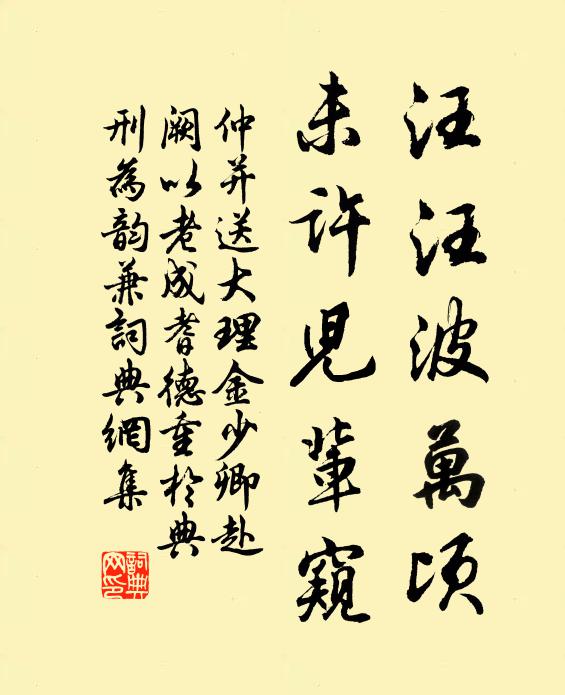 汪汪波萬頃
未許兒輩窺
仲并送大理金少卿赴
闕以老成耆德重於典
刑為韵兼詞典網集
詞典网印